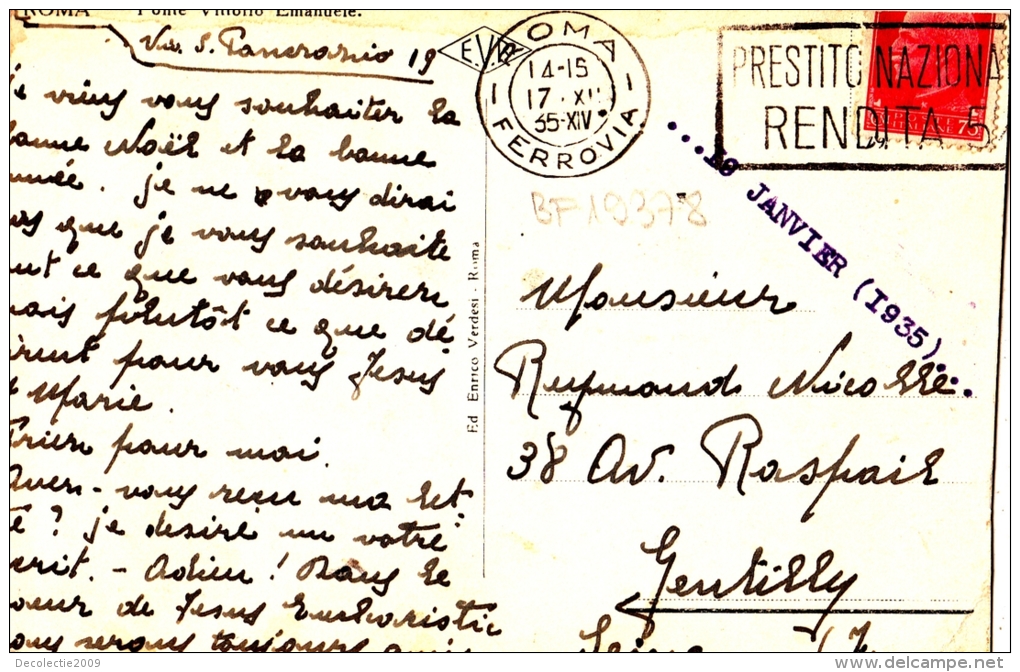 ROMA Ponte Vittorio Emanuele.
Via S. Pancrazio 19
Je viens vous souhaiter la
bonne Noël et la bonne
année. je ne vous dirai
pas que je vous souhaite
tout ce que vous désirez
mais plutôt ce que dé
sirent pour vous Jesus
et Marie.
Priez pour moi.
Avez-vous reçu ma let-
? je désire un votre
- Adieu! Dans le
coeur de Jesus Eucharistic
nous serons toujours
Ed Enrico Verdesi - Roma
E.V.R
ROMA
14-15
17.XII
35-XIV.
FERROVIA
PRESTITO NAZIONA
RENDITA 5
75
BF19378
...I0 JANVIER (I935)...
Monsieur
Raymond Nicolle
38 Av. Raspail
Gentilly
Seine
Decolectie2009
delcampe.net